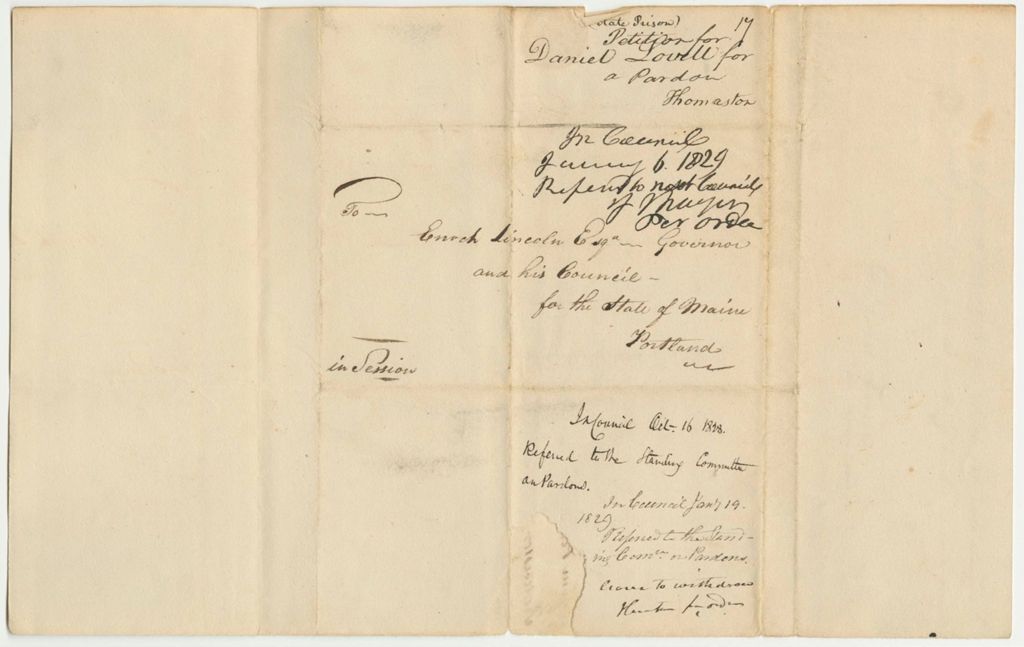 (State Prison) 17
Petition for
Daniel Lovell for
a Pardon
Thomaston
In Council
January 6. 1829
Referd to next Council
Per order
To
Enoch Lincoln Esqr Governor
and his Council -
for the State of Maine
Portland
in Session
In Council Oct. 16 1828.
Referred to the Standing Committee
on Pardons.
In Council Jany 19.
1829
Referred to the Stand-
ing Comee on Pardons.
Leave to withdraw